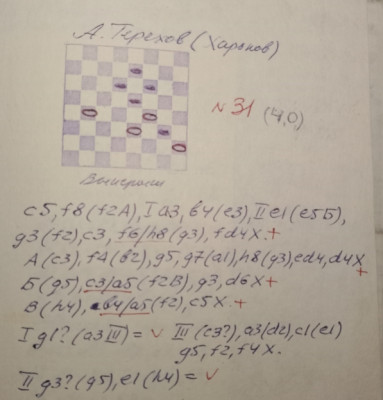 А. Терехов (Харьков)
№ 31 (4,0)
Выигрыш
c5, f8 (f2А), I a3, b4 (e3), II e1 (e5Б),
g3 (f2), c3, f6/h8 (g3), fd4X.+
А (c3), f4 (b2), g5, g7 (a1), h8 (g3), ed4, d4X +
Б (g5), c3/a5 (f2В), g3, d6X +
В (h4), b4/a5 (f2), c5X. +
I g1? (a3 III) = ✓ III (c3?), a3 (d2), c1 (e1)
g5, f2, f4X.
II g3? (g5), e1 (h4) = ✓